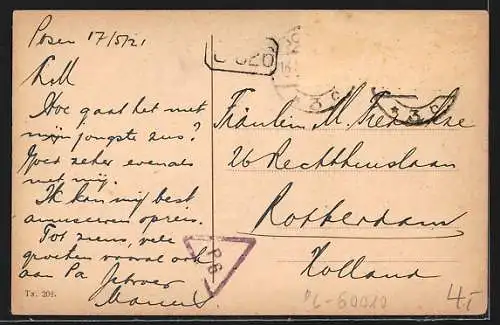 Posen 17/5/21
L.M
Hoe gaat het met
mijn jongste zus?
Goed zeker evenals
met mij.
Ik kan mij best
amuseeren op reis.
Tot ziens, vele
groeten vooral ook
aan Pa
Tx. 201.
Fräulein M.
26 Rechthuislaan
Rotterdam
Holland
P6
4,-